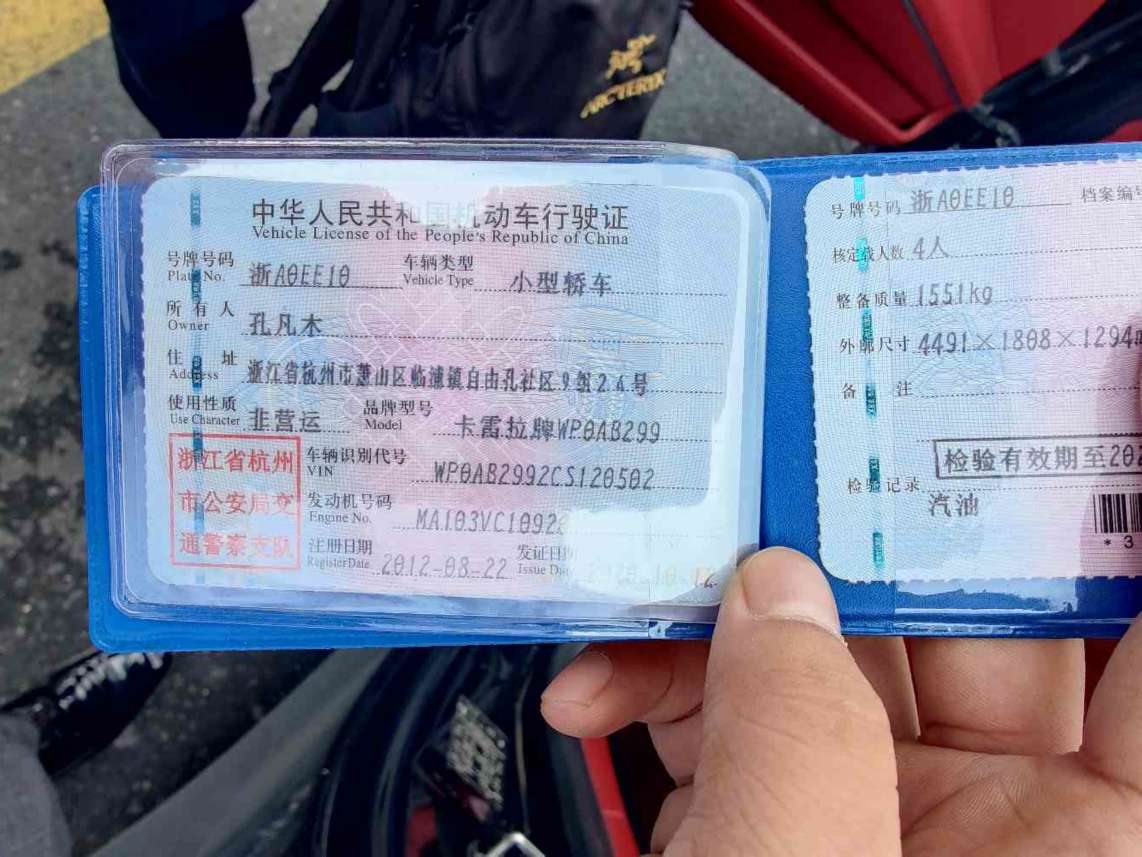 ARC'TERYX
中华人民共和国机动车行驶证
Vehicle License of the People's Republic of China
号牌号码 浙A0EE10 车辆类型 小型轿车
Plate No. Vehicle Type
所有人 孔凡木
Owner
住址 浙江省杭州市萧山区临浦镇自由孔社区9组24号
Address
使用性质 非营运 品牌型号 卡雷拉牌WP0AB299
Use Character Model
浙江省杭州
市公安局交
通警察支队
车辆识别代号 WP0AB2992CS120502
VIN
发动机号码 MA103VC1092
Engine No.
注册日期 2012-08-22 发证日期
Register Date Issue Da
号牌号码 浙A0EE10 档案编号
核定载人数 4人
整备质量 1551kg
外廓尺寸 4491×1808×1294m
备注
检验有效期至202
检验记录
汽油
*3